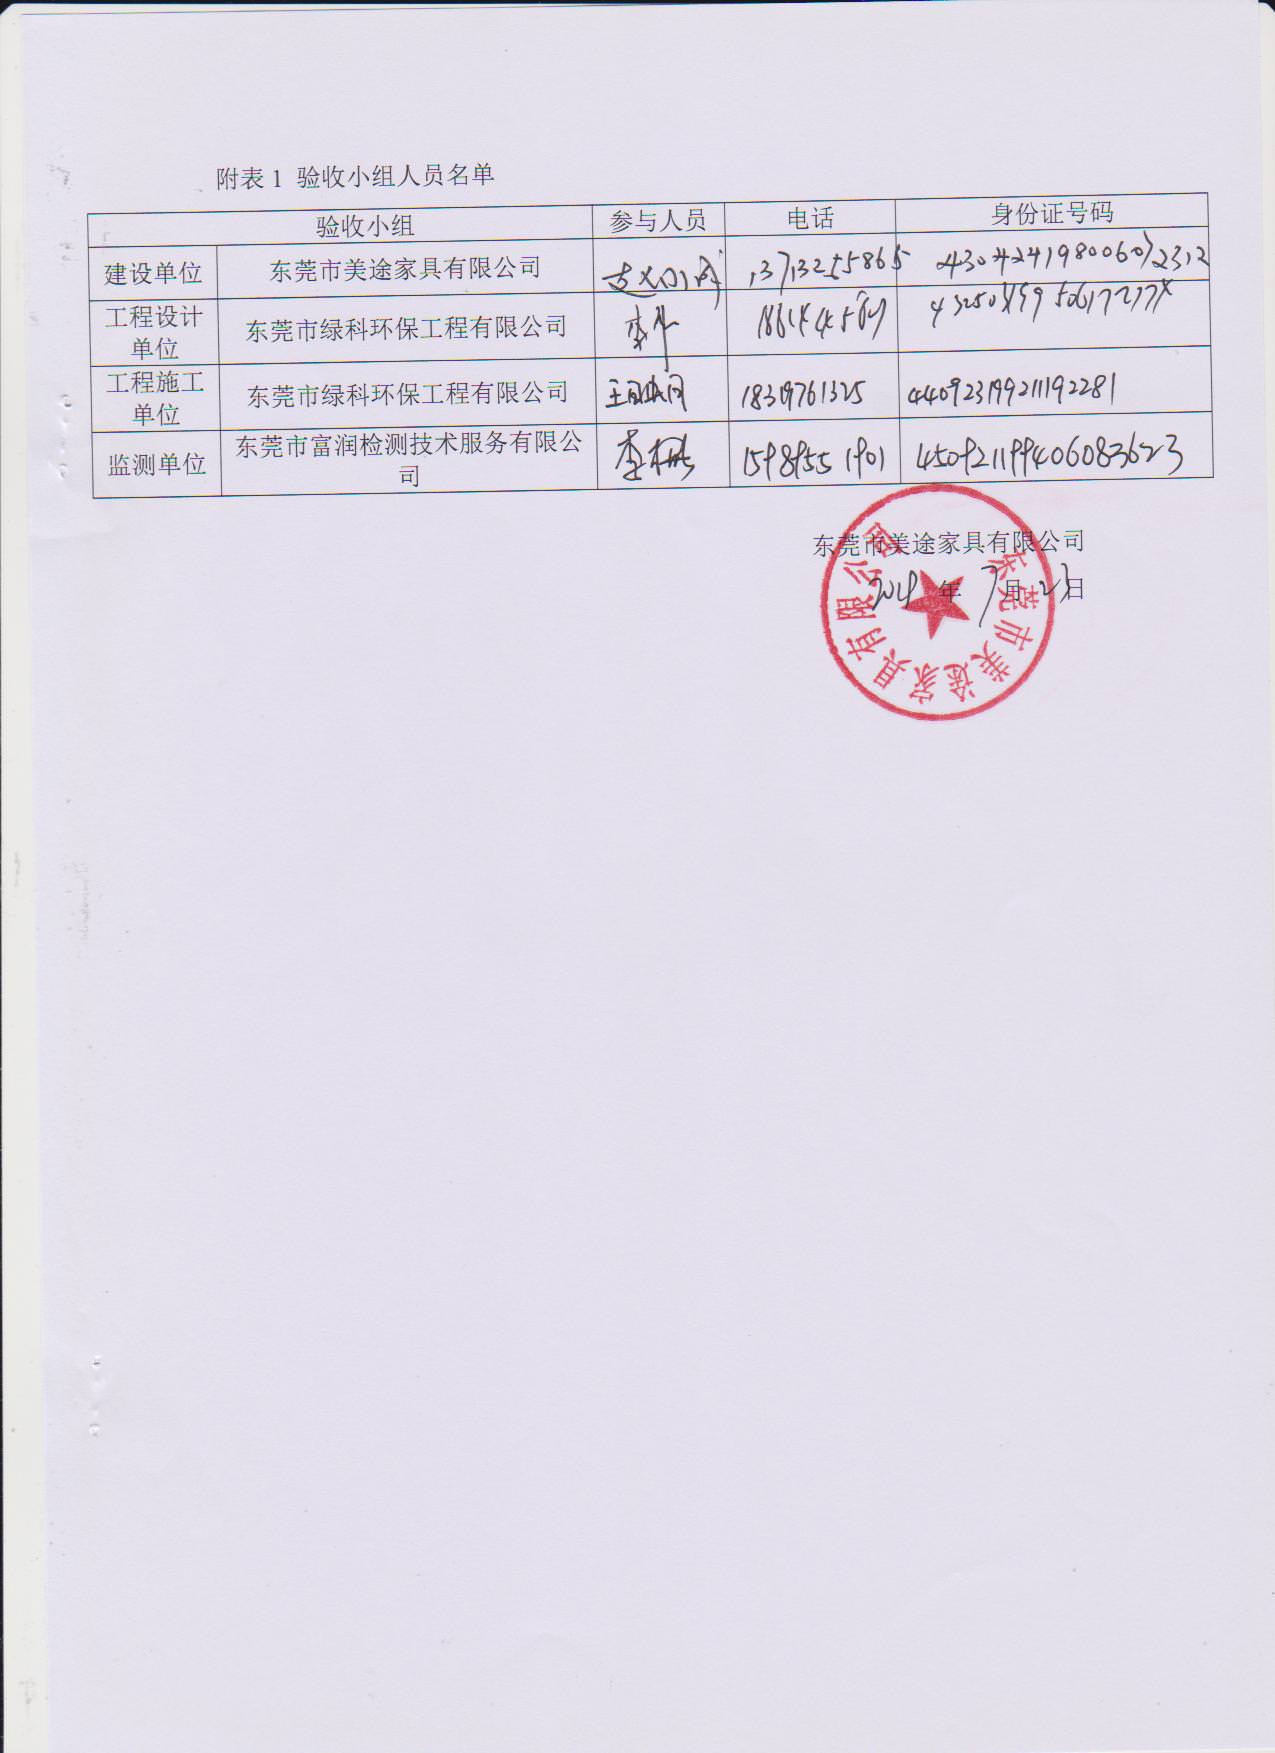 附表1 验收小组人员名单
验收小组 参与人员 电话 身份证号码
建设单位 东莞市美途家具有限公司 13713255865
工程设计
单位 东莞市绿科环保工程有限公司
工程施工
单位 东莞市绿科环保工程有限公司 18319761325 440923199211192281
监测单位 东莞市富润检测技术服务有限公
司 李 15989551901 450921199406083623
东莞市美途家具有限公司
年7月23日
东莞市美途家具有限公司